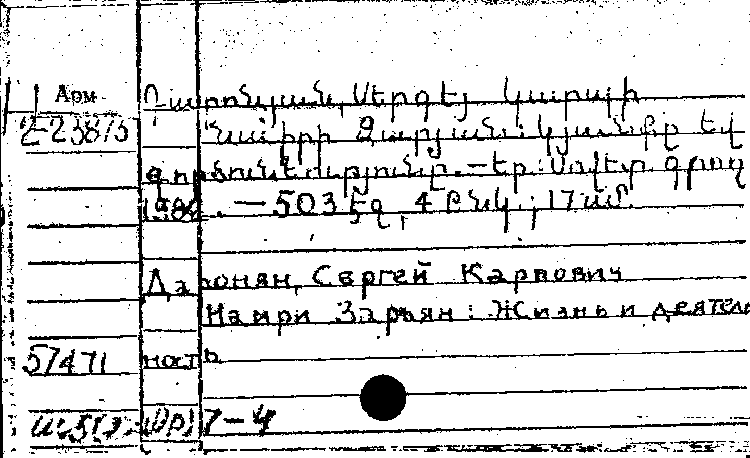 Арм
2-23875
Դարոնյան, Սերգեյ Կարպի
Նաիրի Զարյան: Կյանքը եվ
գործունեությունը.—Եր.:Սովետ. գրող
1982.—503 էջ, 4 թ նկ.; 17 սմ.
Даронян, Сергей Карпович
Наири Зарьян: Жизнь и деятель
ность
57471
7-4